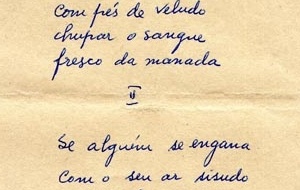 Com pés de veludo
chupar o sangue
fresco da manada
II
Se alguém se engana
com o seu ar sisudo